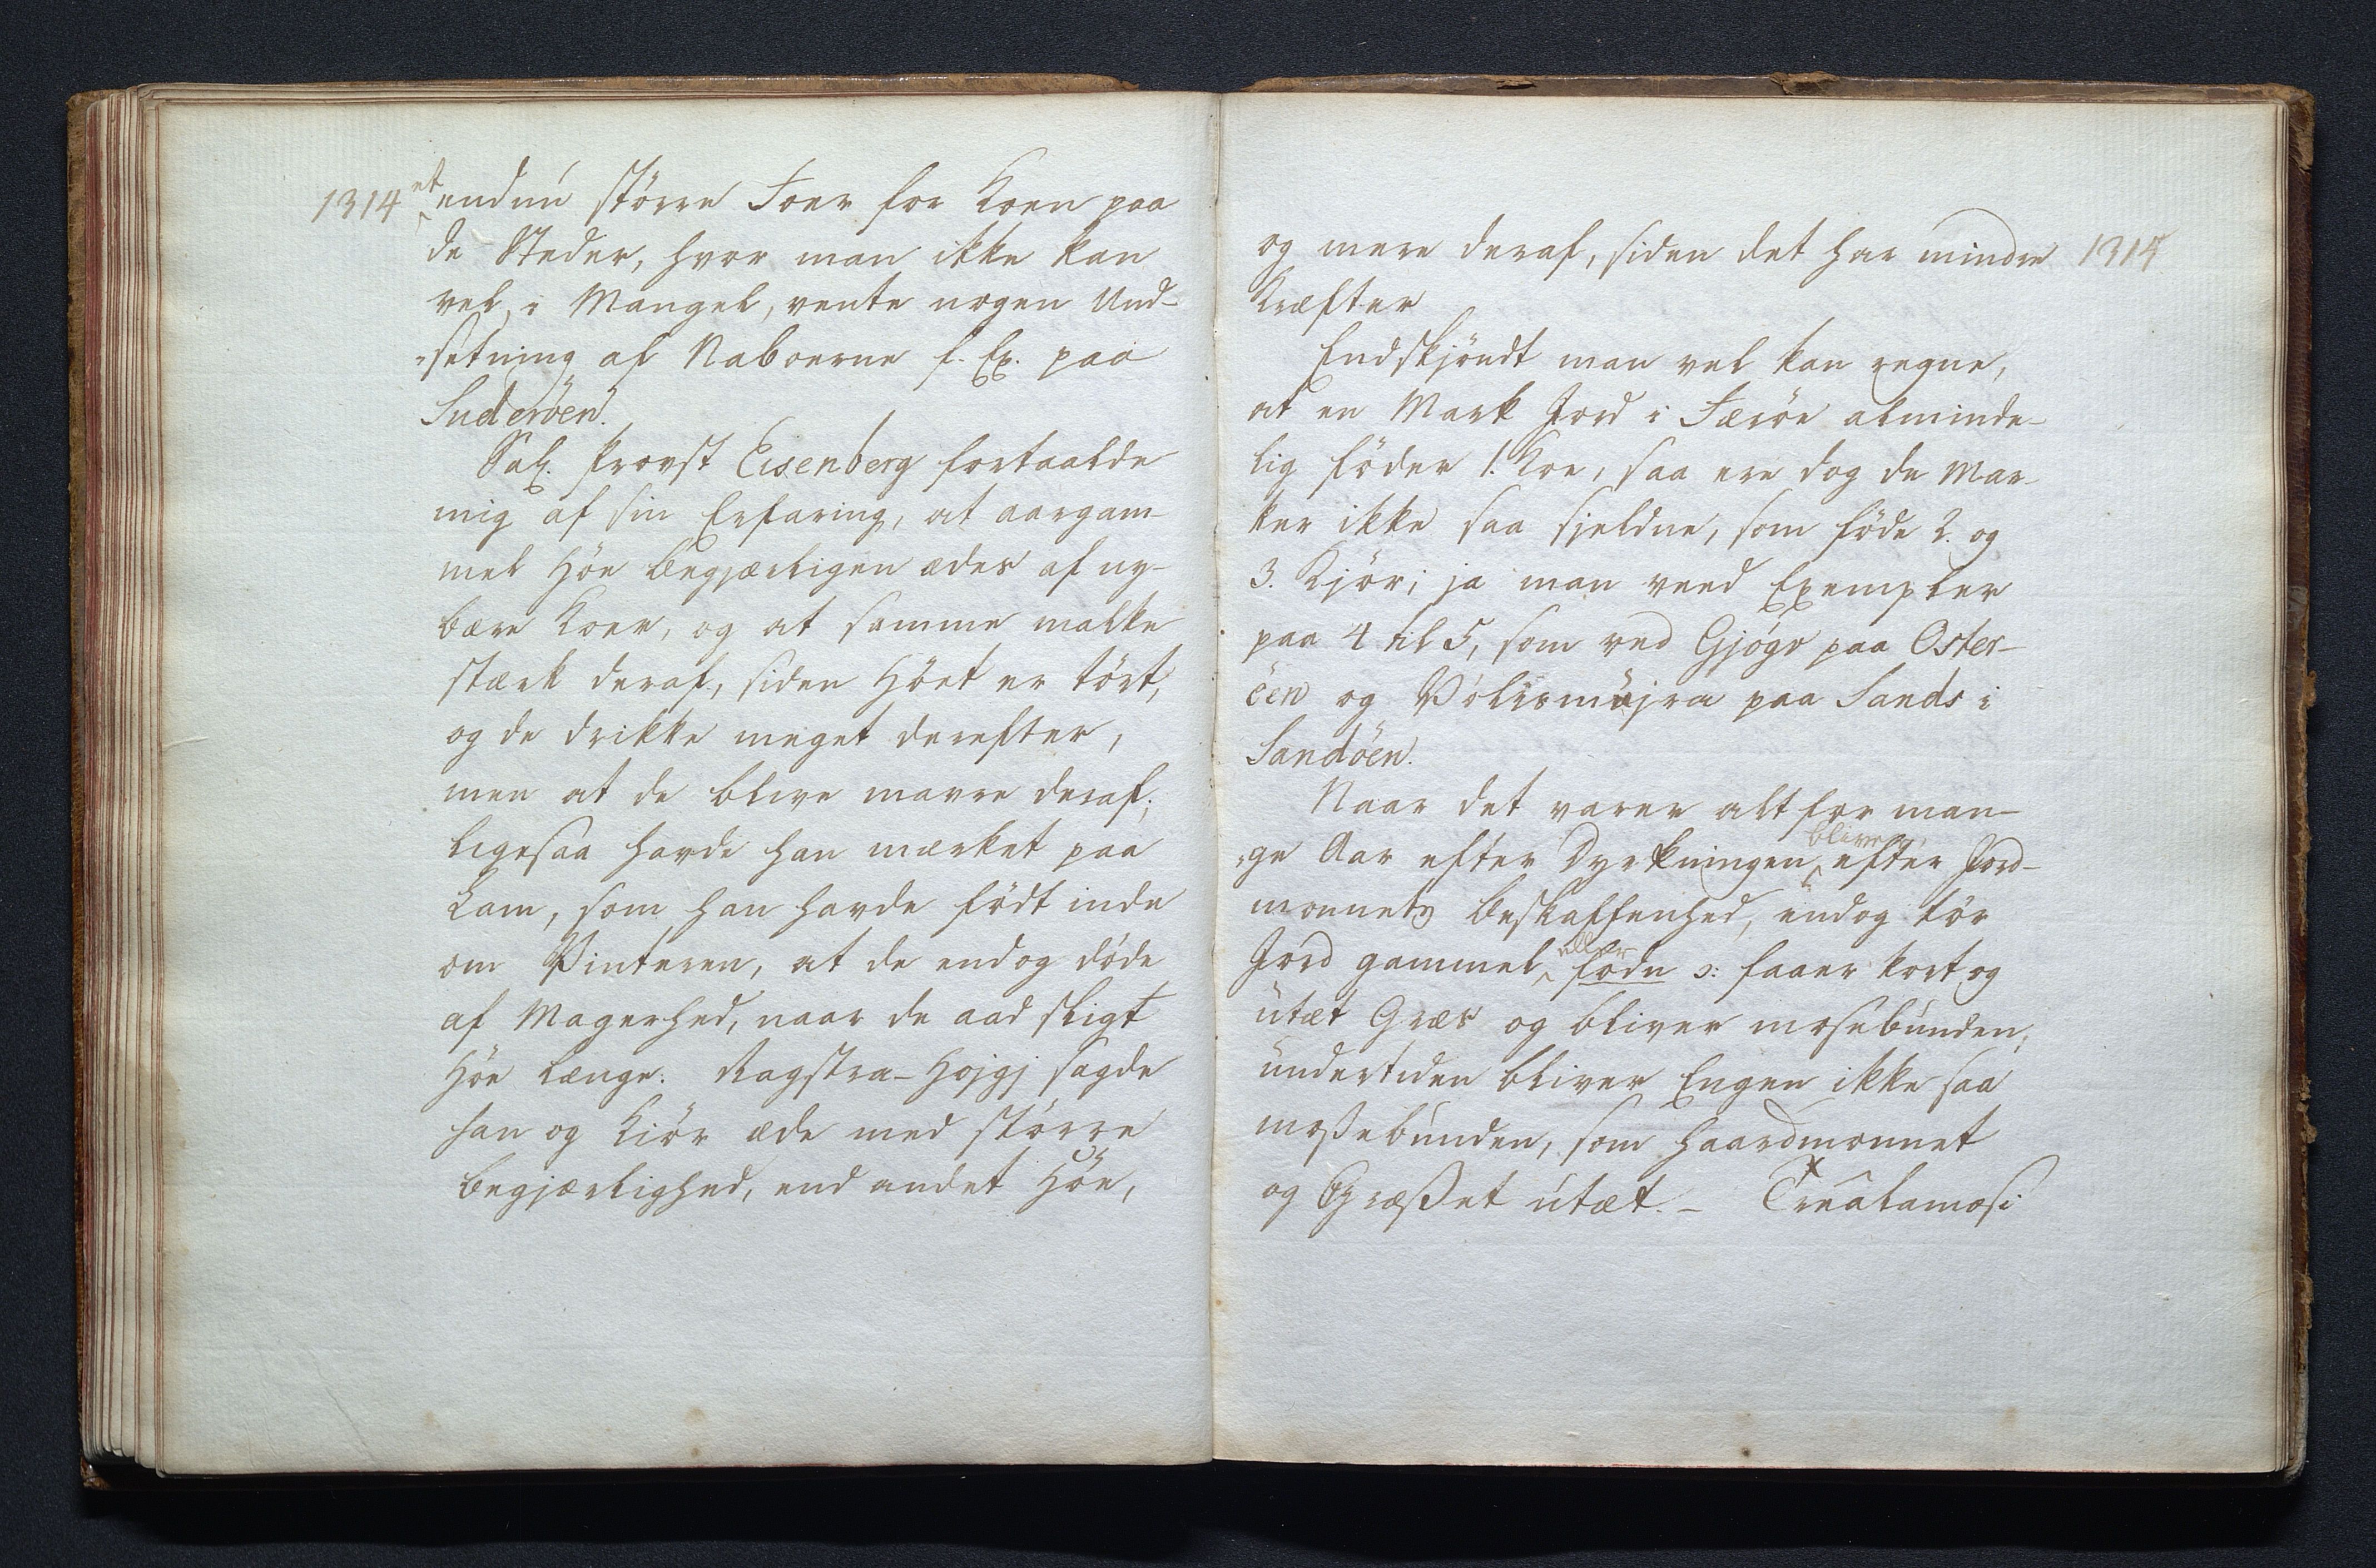 1314 et endnú större Foer for Koen paa
de Steder, hvor man ikke kan
vel, i Mangel, vente nogen Und-
-sætning af Naboerne f. Ex. paa
Suderöen.
Sal. Provst Eisenberg fortaalde
mig af sin Erfaring, at aargam-
mel Höe begjærligen ædes af ny-
bære Koer, og at samme malke
stærk deraf, siden Höet er tört,
og de drikke meget derefter,
men at de blive mavre deraf;
ligesaa havde han mærket paa
Lam, som han havde födt inde
om Vinteren, at de endog döde
af Magerhed, naar de aad sligt
Höe længe. Ragstra-Hojgj sagde
han og Kiör æde med större
Begjærlighed, end andet Höe,
og mere deraf, siden det har mindre 1314
Kræfter
Endskjöndt man vel kan regne,
at en Mark Jord i Færöe alminde-
lig föder 1. Koe, saa ere dog de Mar-
ker ikke saa sjeldne, som föde 2. og
3. Kjör; ja man veed Exempler
paa 4 til 5, som ved Gjógv paa Oster-
öen og Vólismöjra paa Sands i
Sandöen.
Naar det varer alt for man-
-ge Aar efter Dyrkningen, bliver efter Jord-
monnets Beskaffenhed, endog tör
Jord gammel eller fodn ɔ: faaer kort og
útæt Græs og bliver mosebúnden,
úndertiden bliver Engen ikke saa
moßebúnden, som haardmonnet
og Græßet útæt. - Trealamosi